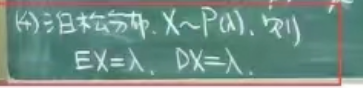 (4) 泊松分布. X~P(λ). 则
EX=λ. DX=λ.